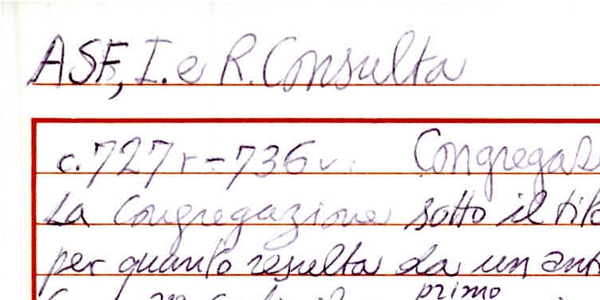 ASF, I. e R. Consulta
c. 727r-736v.
La Congregazione sotto il
per quanto resulta da un
primo